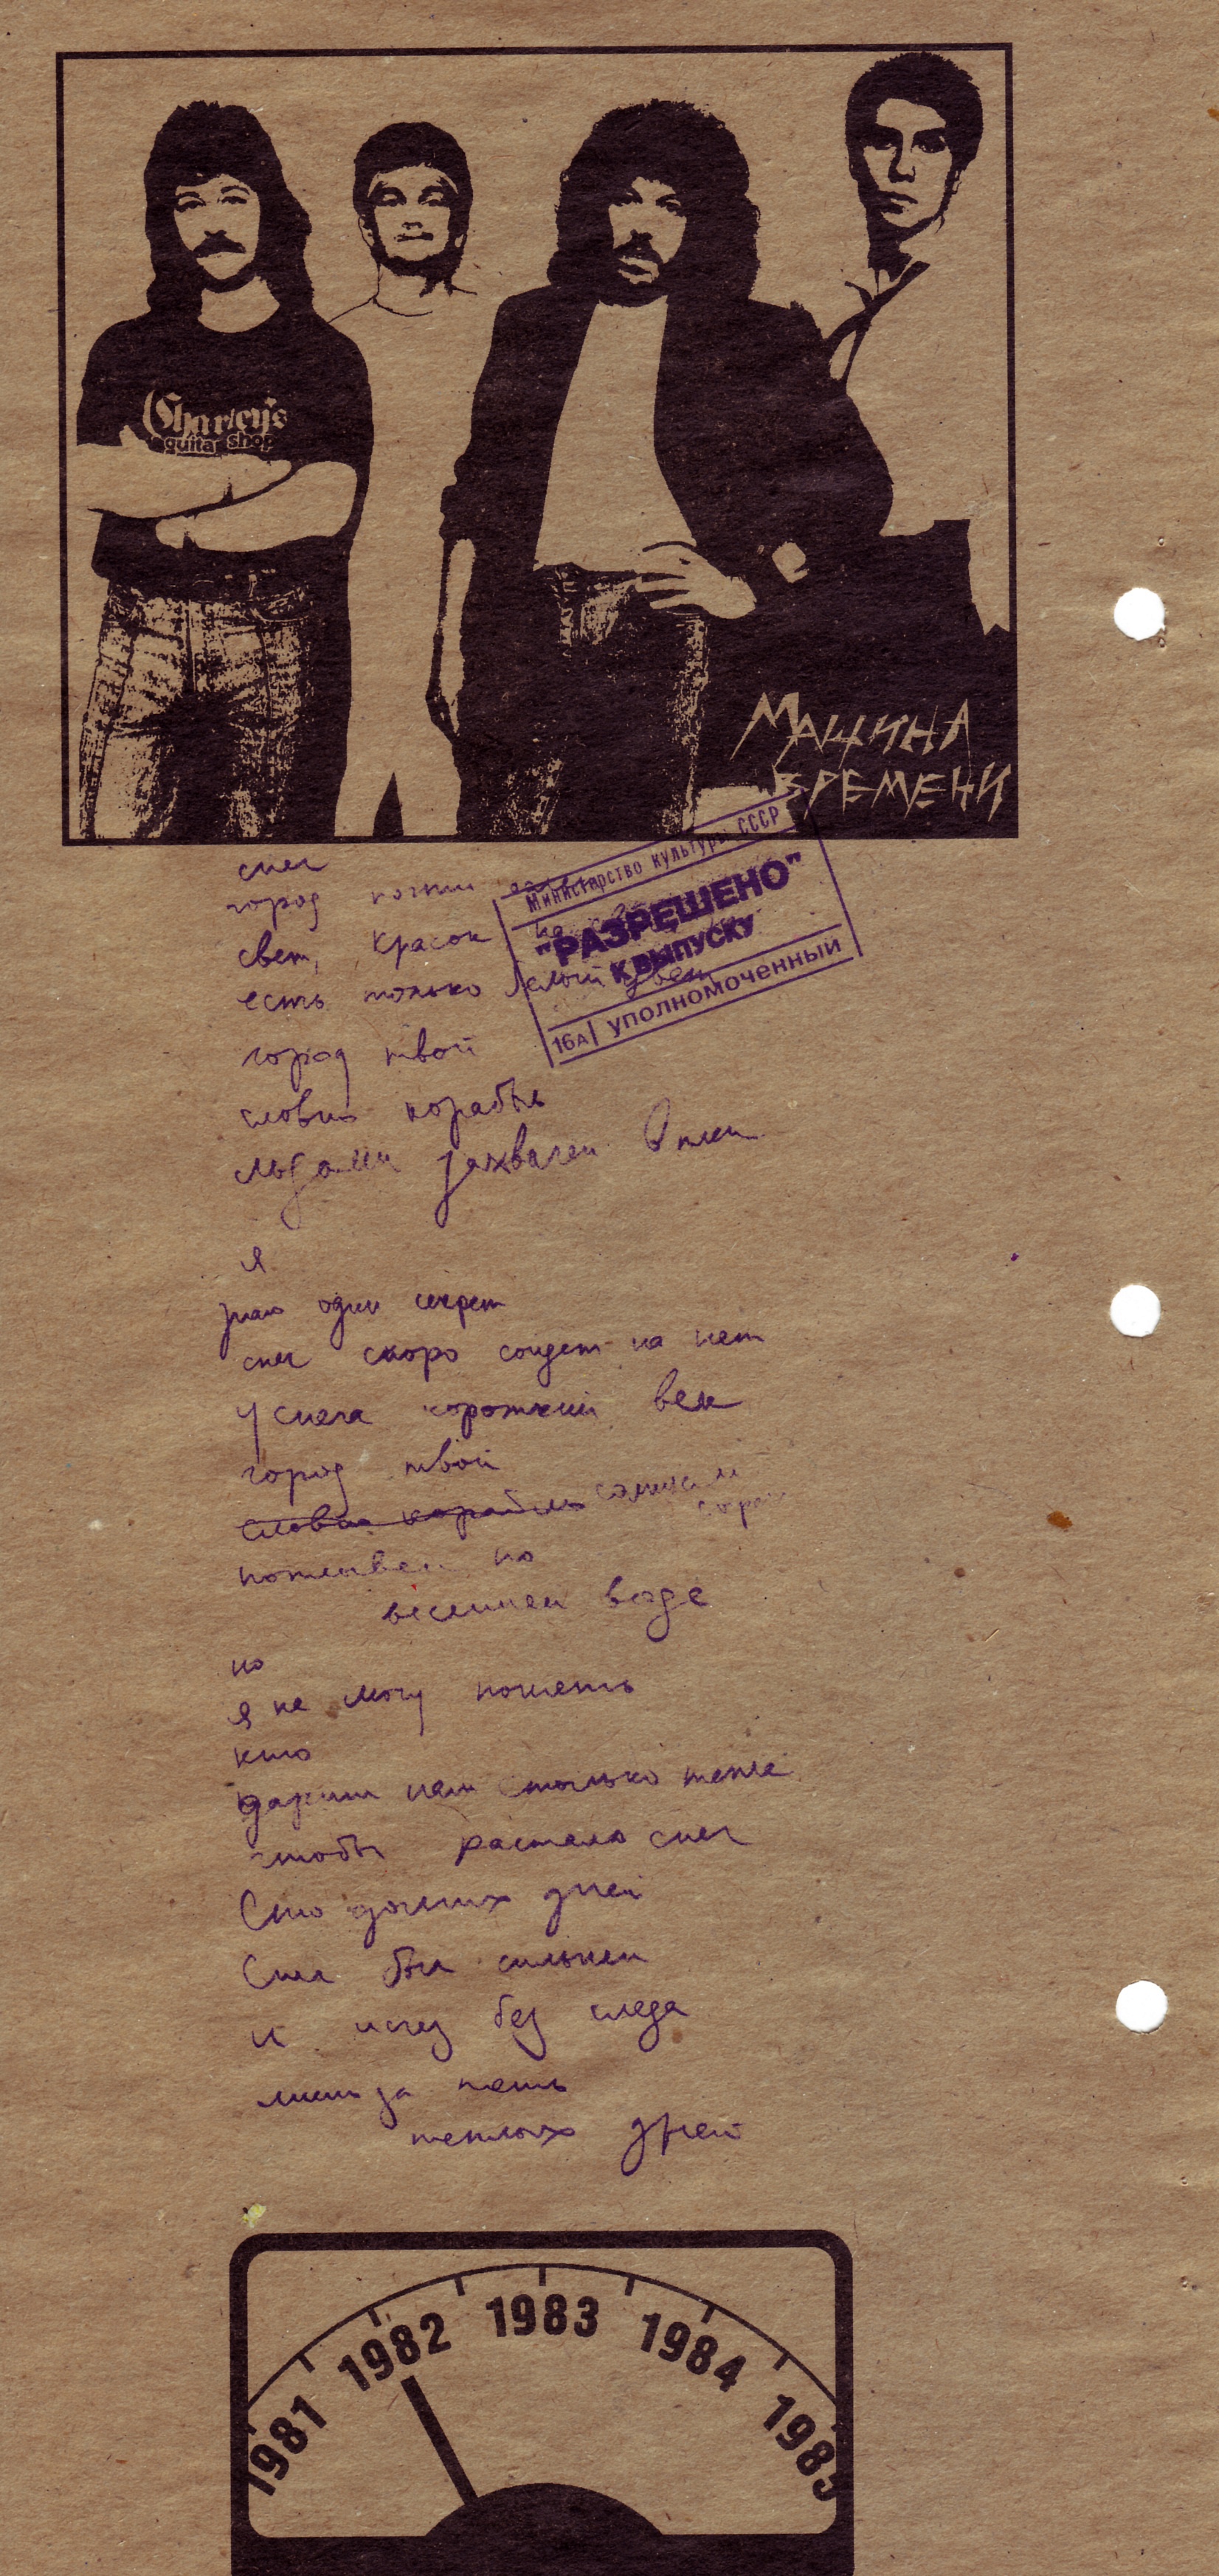 Charley's
guitar shop
МАШИНА
ВРЕМЕНИ
Министерство культуры СССР
"РАЗРЕШЕНО"
К ВЫПУСКУ
16А уполномоченный
снег
город почти
свет, красок
есть только белый цвет
город твой
словно корабль
льдами захвачен в плен
я
знаю один секрет
снег скоро сойдет на нет
у снега короткий век
город твой
словно корабль
поплывет по
весенней воде
но
я не могу понять
кто
дарит нам столько тепла
чтобы растаял снег
Сто долгих дней
Снег был сильней
и исчез без следа
лишь за пять
теплых дней
1981 1982 1983 1984 1985